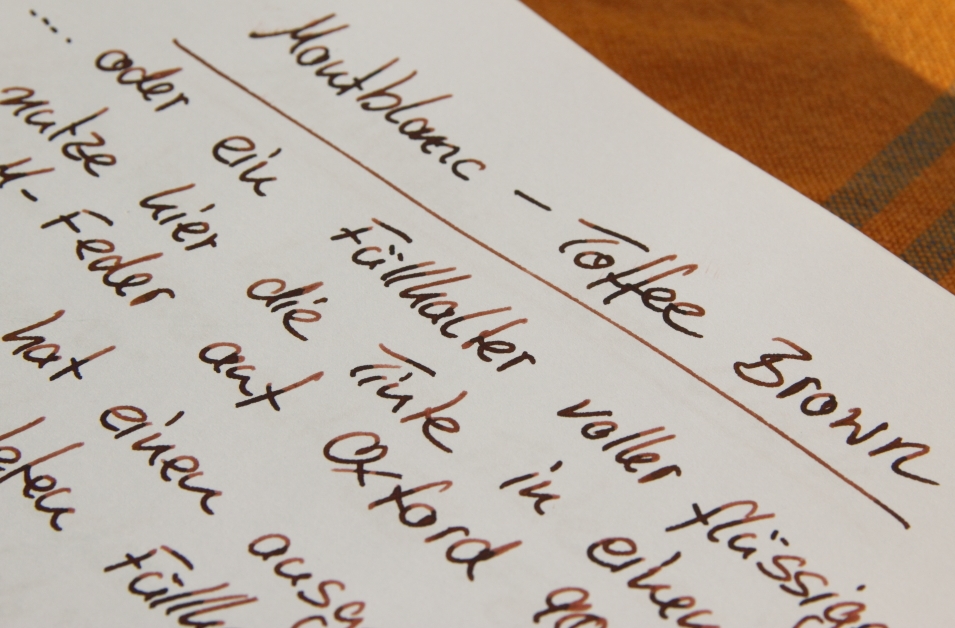 Montblanc – Toffee Brown
.... oder ein Füllhalter voller flüssig
nutze hier die Tinte in einen
M-Feder auf Oxford
hat einen ausg
Füllh